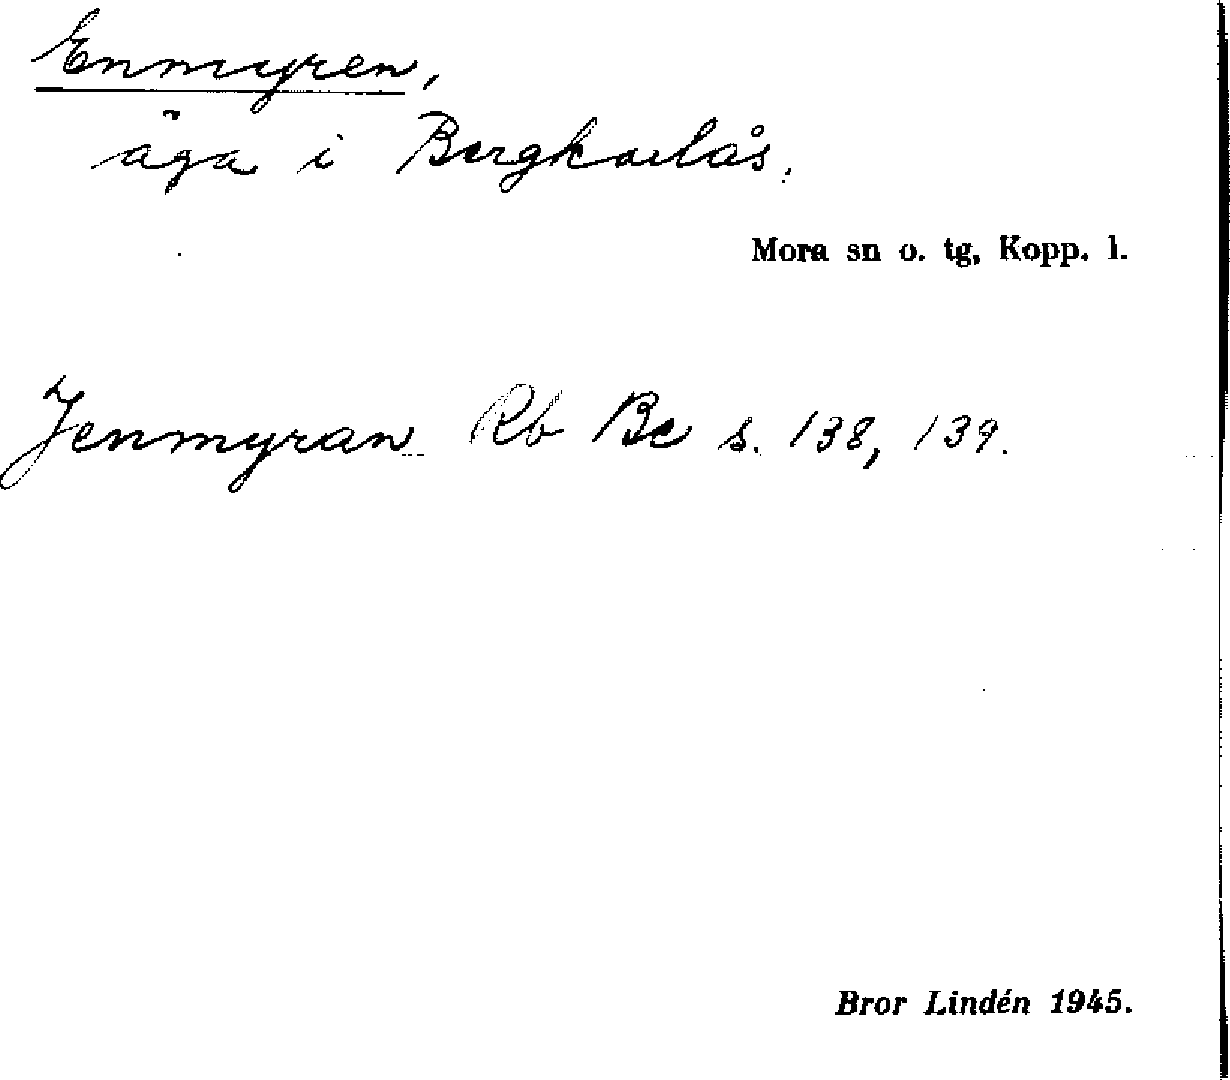 Enmyren,
äga i Bergkarlås.
Mora sn o. tg, Kopp. l.
Jenmyran Rb Bc s. 138, 139.
Bror Lindén 1945.